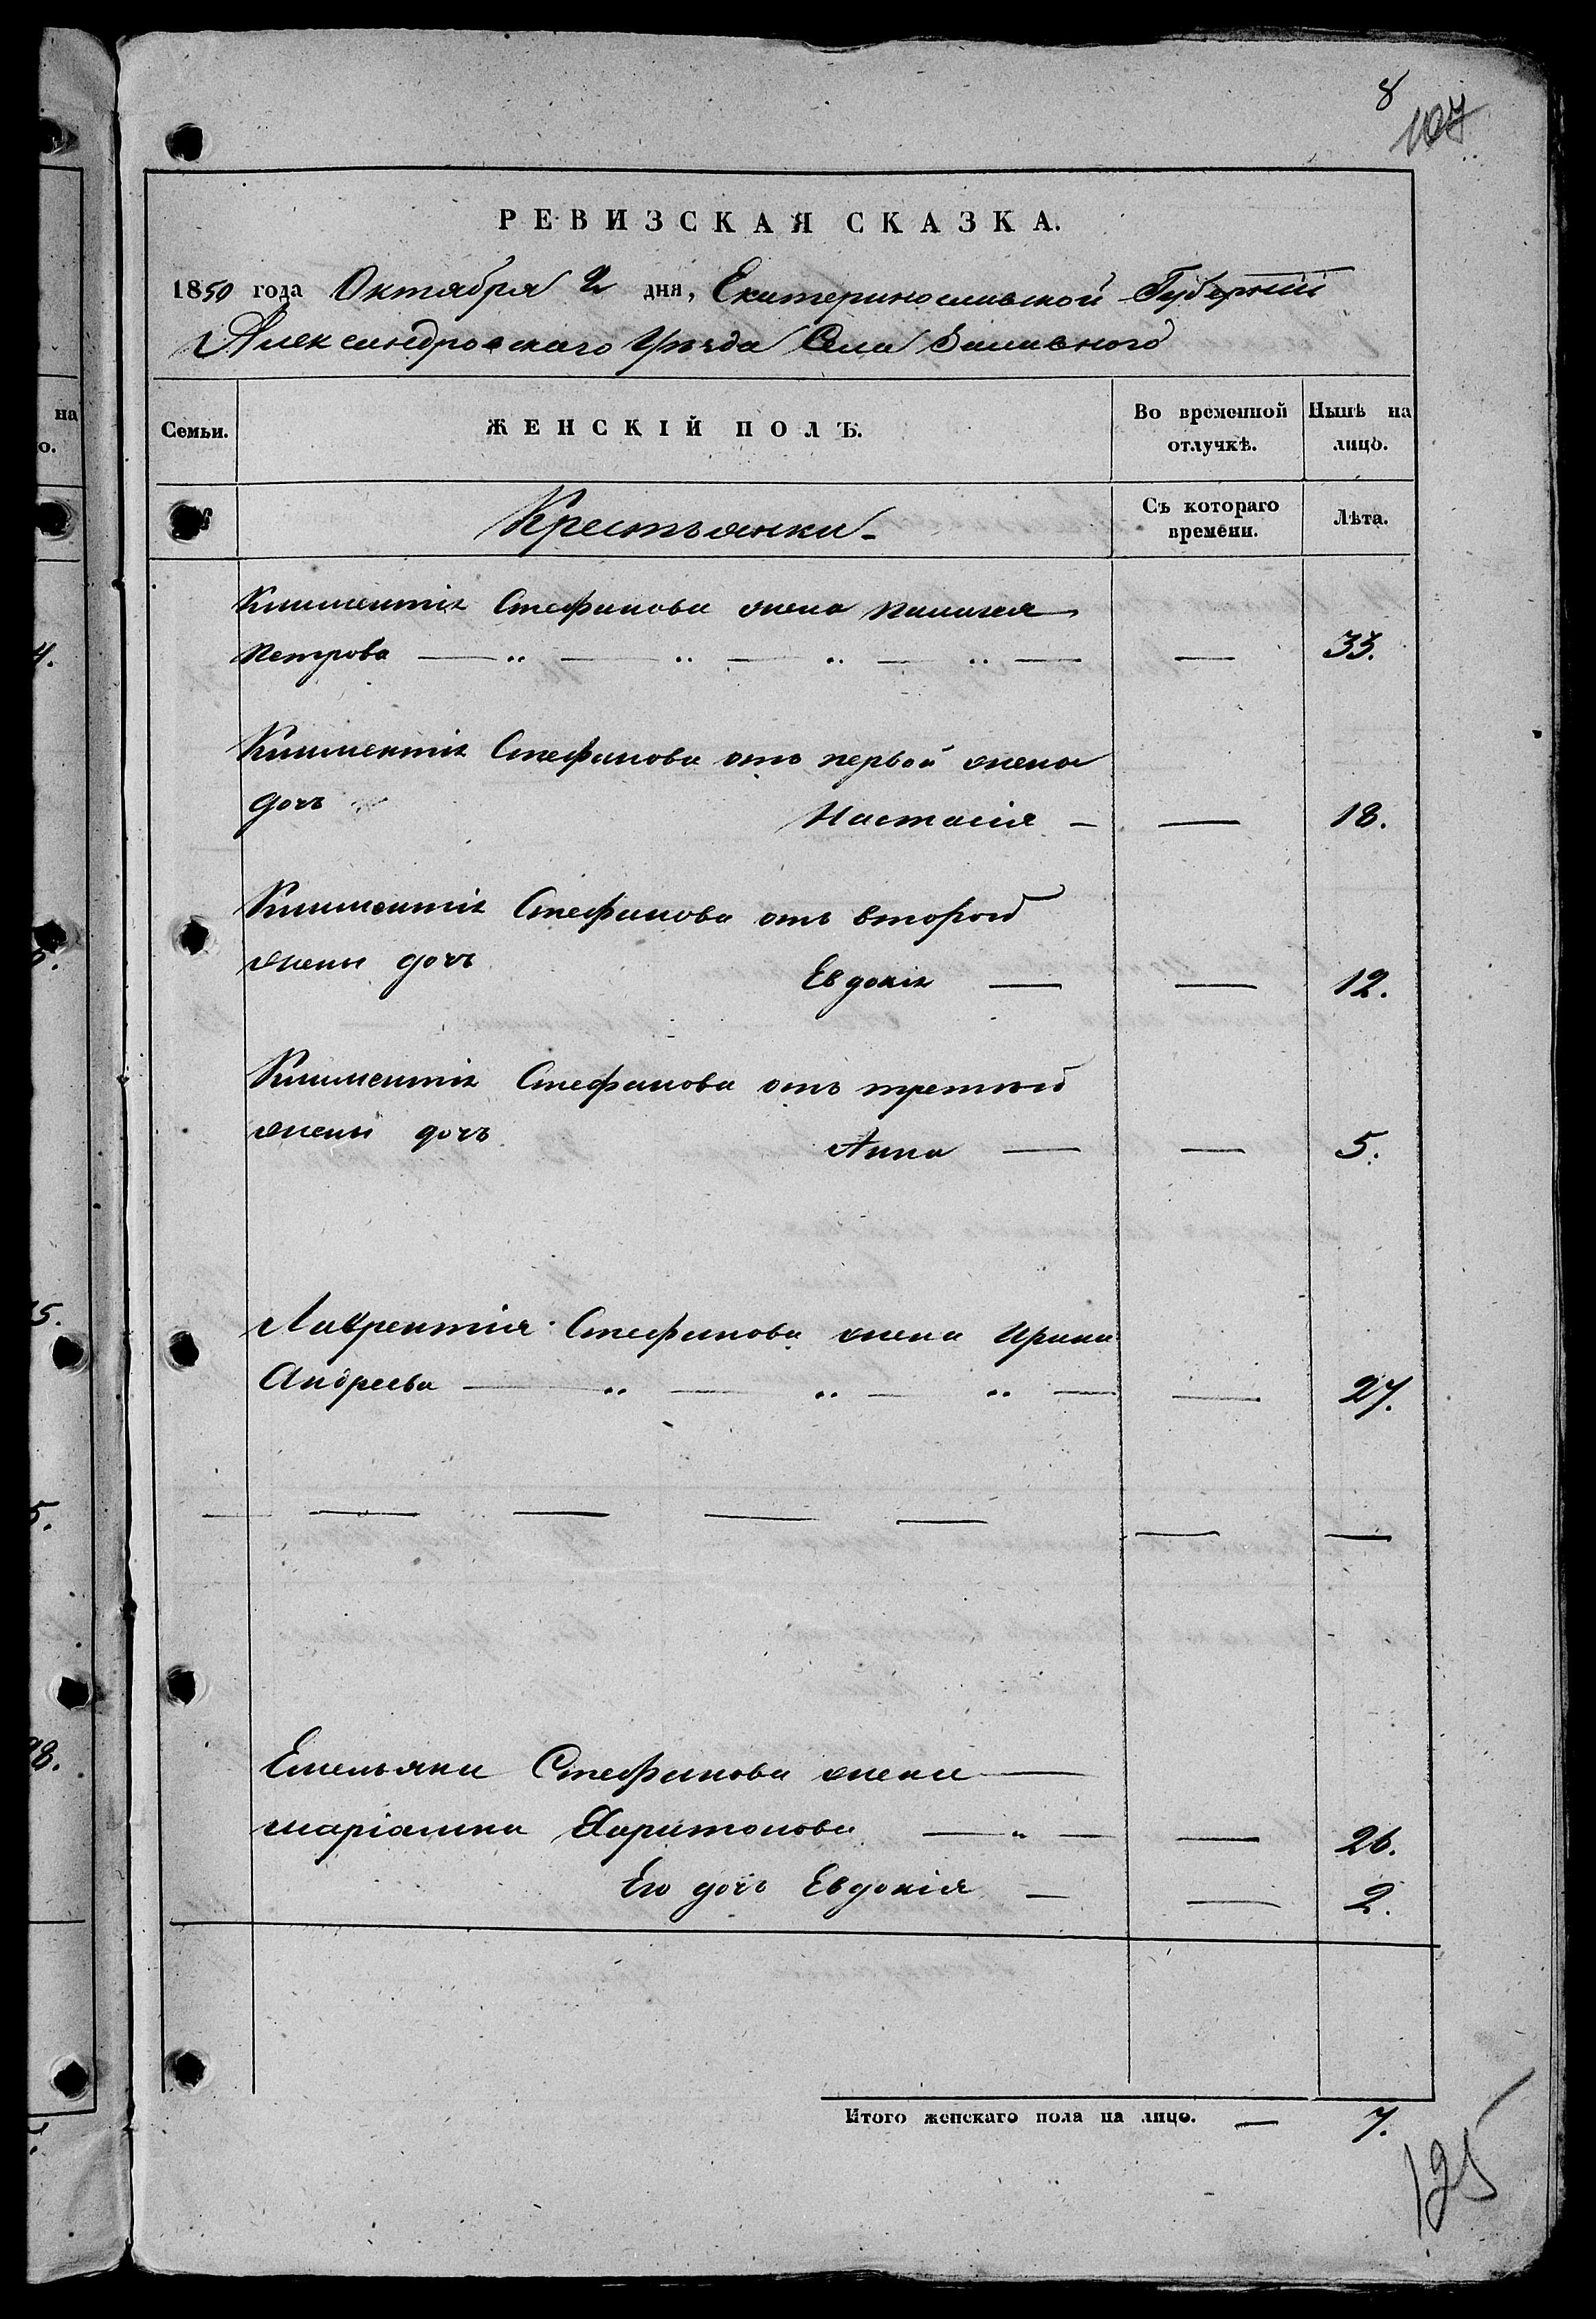 8
107
РЕВИЗСКАЯ СКАЗКА.
1850 года Октября 2 дня, Екатеринославской Губерніи
Александровскаго Уѣзда Села Заливного
на
о.
Семьи.
ЖЕНСКІЙ ПОЛЪ.
Во временной отлучкѣ.
Нынѣ на лицо.
Крестьянки
Съ котораго времени.
Лѣта.
Климентія Стефанова жена Палагея
Петрова — „ — „ — „ — „ — — 33.
Климентія Стефанова отъ первой жены
дочь Настасія — — 18.
Климентія Стефанова отъ второй
жены дочь Евдокія — — 12.
Климентія Стефанова отъ третьей
жены дочь Анна — — 5.
Лаврентія Стефанова жена Ирина
Андреева — „ — „ — „ — — 27.
Емельяна Стефанова жена —
Маріамна Харитонова — „ — — 26.
Его дочь Евдокія — — 2.
Итого женскаго пола на лицо. — 7.
125